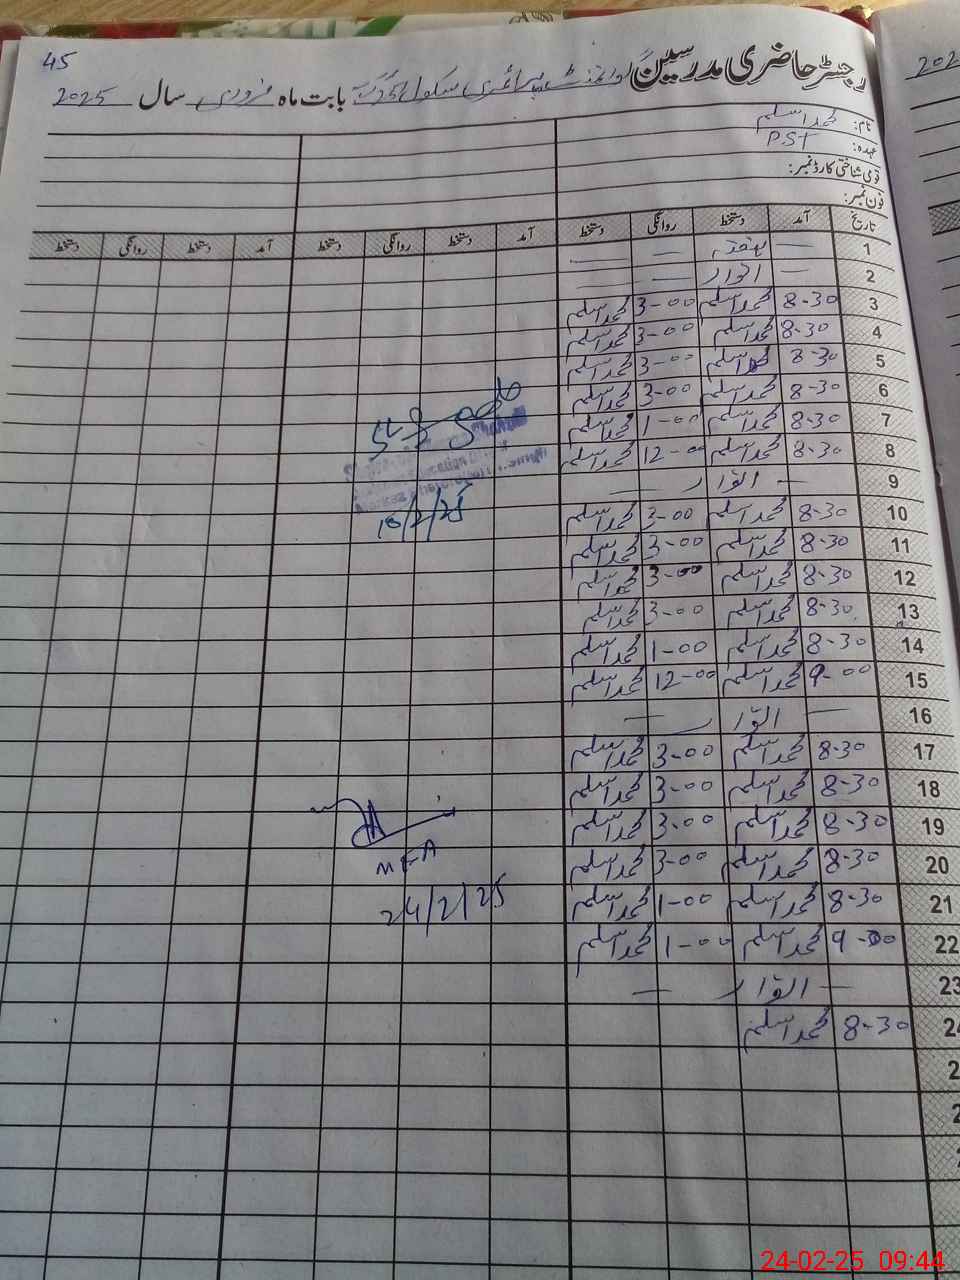 45
رجسٹر حاضری مدرسین گورنمنٹ پرائمری سکول بابت ماہ فروری سال 2025
نام: محمد اسلم
عہدہ: PST
قومی شناختی کارڈ نمبر:
فون نمبر:
تاریخ آمد دستخط روانگی دستخط آمد دستخط روانگی دستخط آمد دستخط روانگی دستخط
1 — ہفتہ — —
2 — اتوار — —
3 8-30 محمد اسلم 3-00 محمد اسلم
4 8-30 محمد اسلم 3-00 محمد اسلم
5 8-30 محمد اسلم 3-00 محمد اسلم
6 8-30 محمد اسلم 3-00 محمد اسلم
7 8-30 محمد اسلم 1-00 محمد اسلم
8 8-30 محمد اسلم 12-00 محمد اسلم
9 — اتوار — —
10 8-30 محمد اسلم 3-00 محمد اسلم
11 8-30 محمد اسلم 3-00 محمد اسلم
12 8-30 محمد اسلم 3-00 محمد اسلم
13 8-30 محمد اسلم 3-00 محمد اسلم
14 8-30 محمد اسلم 1-00 محمد اسلم
15 9-00 محمد اسلم 12-00 محمد اسلم
16 — اتوار — —
17 8-30 محمد اسلم 3-00 محمد اسلم
18 8-30 محمد اسلم 3-00 محمد اسلم
19 8-30 محمد اسلم 3-00 محمد اسلم
20 8-30 محمد اسلم 3-00 محمد اسلم
21 8-30 محمد اسلم 1-00 محمد اسلم
22 9-00 محمد اسلم 1-00 محمد اسلم
23 — اتوار — —
24 8-30 محمد اسلم
MEA
24/2/25
24-02-25 09:44